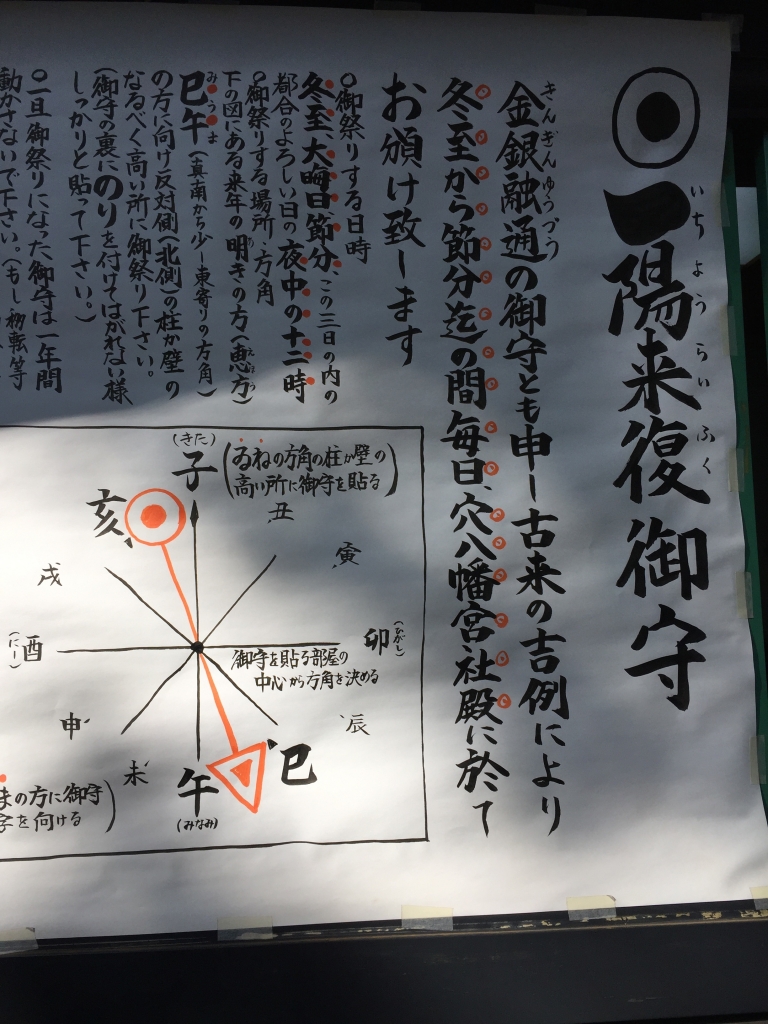 一陽来復御守
いちようらいふく
金銀融通の御守とも申し古来の吉例により
きんぎんゆうづう
冬至から節分迄の間毎日、穴八幡宮社殿に於て
お頒け致します
○御祭りする日時
冬至、大晦日、節分、この三日の内の
都合のよろしい日の夜中の十二時
○御祭りする場所、方角
下の図にある来年の明きの方(恵方)
えほう
巳午(真南から少し東寄りの方角)
みうま
の方に向け反対側(北側)の柱か壁の
なるべく高い所に御祭り下さい。
(御守の裏にのりを付けてはがれない様
しっかりと貼って下さい。)
○一旦御祭りになった御守は一年間
動かさないで下さい。(もし移転等
(きた)
子
(ゐねの方角の柱か壁の
高い所に御守を貼る)
亥
丑
寅
戌
卯
(ひがし)
酉
(にし)
御守を貼る部屋の
中心から方角を決める
申
辰
未
巳
午
(みなみ)
まの方に御守
字を向ける)